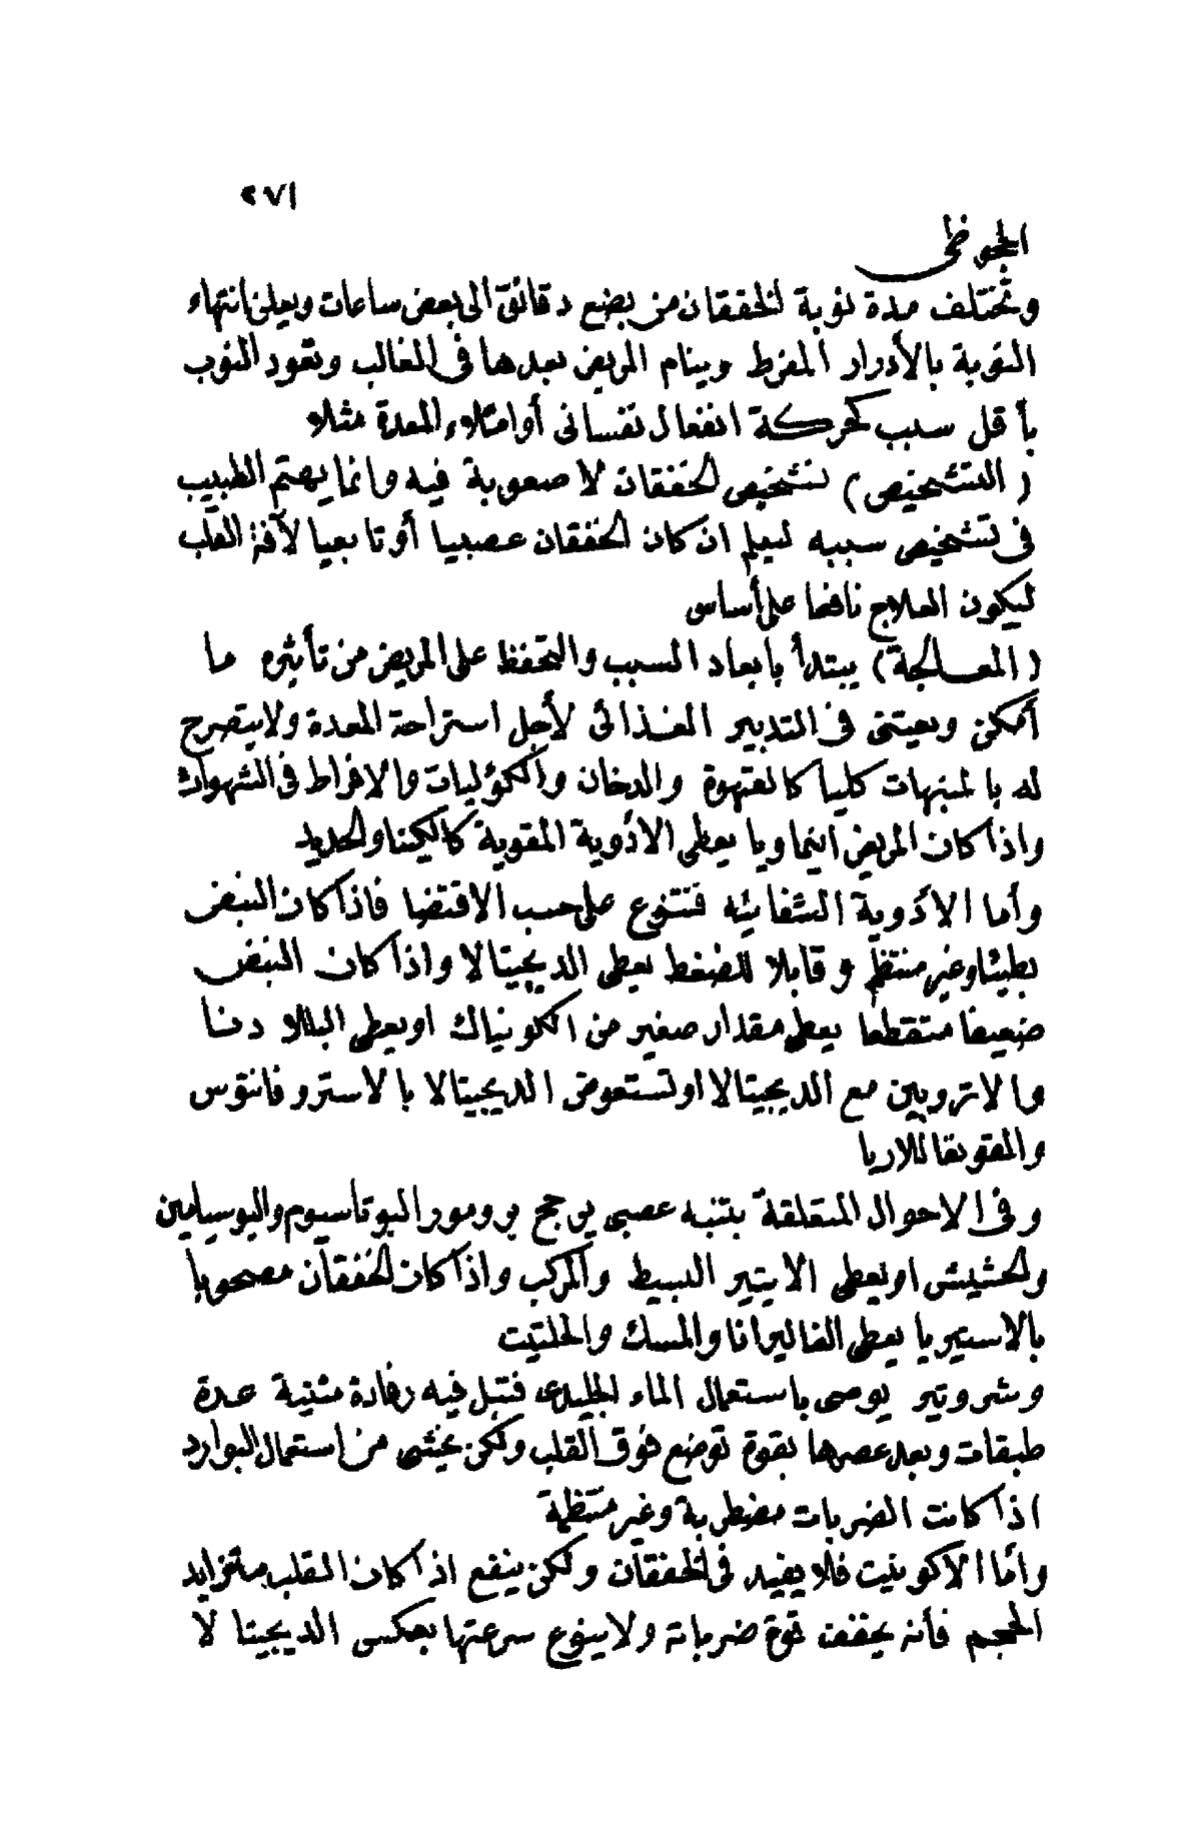 ٢٧١
الجحوظى
وتختلف مدة نوبة الخفقان من بضع دقائق الى بعض ساعات ويعلن انتهاء
النوبة بالأدرار المفرط وينام المريض بعدها فى الغالب وتعود النوب
بأقل سبب كحركة انفعال نفسانى أو امتلاء المعدة مثلا
(التشخيص) تشخيص الخفقان لا صعوبة فيه وانما يهتم الطبيب
فى تشخيص سببه ليعلم ان كان الخفقان عصبيا أو تابعيا لآفة القلب
ليكون العلاج نافعا على أساس
(المعالجة) يبتدأ بابعاد السبب والتحفظ على المريض من تأثيره ما
أمكن ويعتنى فى التدبير الغذائى لأجل استراحة المعدة ولا يتصرح
له بالمنبهات كليا كالقهوة والدخان والكؤليات والافراط فى الشهوات
واذا كان المريض انيماويا يعطى الادوية المقوية كالكينا والحديد
وأما الأدوية الشفائيه فتتنوع على حسب الاقتضا فاذا كان النبض
بطيئا وغير منتظم وقابلا للضغط يعطى الديجيتالا واذا كان النبض
ضعيفا متقطعا يعطى مقدار صغير من الكونياك او يعطى البللادنا
والاتروبين مع الديجيتالا او تستعوض الديجيتالا بالاستروفانتوس
والقونقاللاريا
وفى الاحوال المتعلقة بتنبه عصبى يرجح برومور البوتاسيوم واليوسيامين
والحشيش او يعطى الايتير البسيط والمركب واذا كان الخفقان مصحوبا
بالاستيريا يعطى الفاليرانا والمسك والحلتيت
وشروتير يوصى باستعمال الماء الجليدى فتبل فيه رفادة مثنية عدة
طبقات وبعد عصرها بقوة توضع فوق القلب ولكن يخشى من استعمال البوارد
اذا كانت الضربات مضطربة وغير منتظمة
وأما الاكونيت فلا يفيد فى الخفقان ولكن ينفع اذا كان القلب متزايد
الحجم فأنه يخفف قوة ضرباته ولا ينوع سرعتها بعكس الديجيتا لا